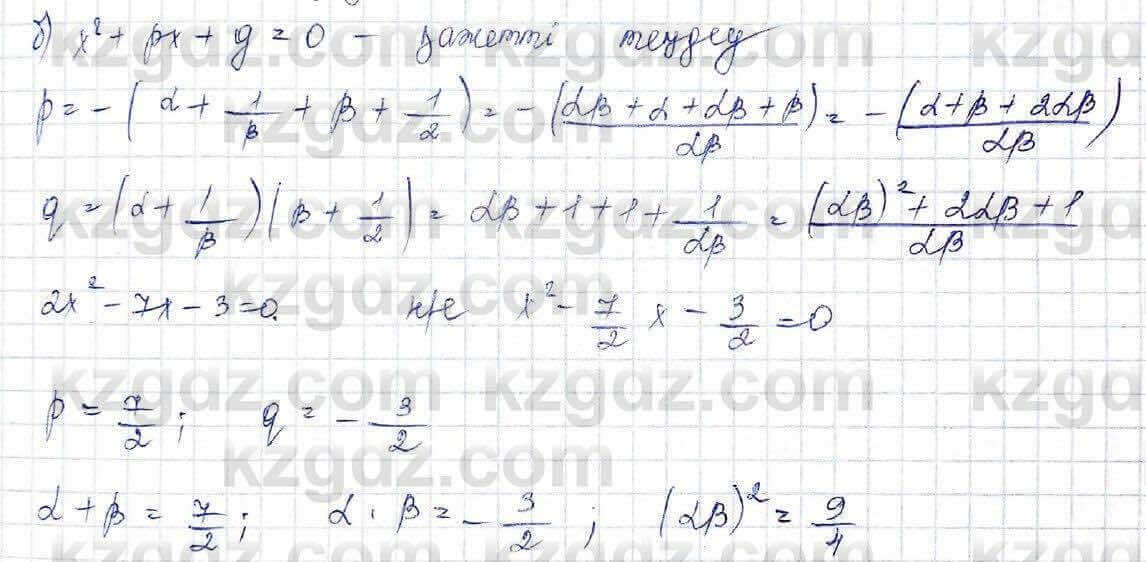 б) x² + px + g = 0 - қажетті теңдеу
p = -(α + 1/β + β + 1/2) = -(αβ + α + αβ + β)/αβ = -(α + β + 2αβ)/αβ
q = (α + 1/β)(β + 1/2) = αβ + 1 + 1 + 1/αβ = ((αβ)² + 2αβ + 1)/αβ
2x² - 7x - 3 = 0. н/е x² - 7/2 x - 3/2 = 0
p = 7/2; q = -3/2
α + β = 7/2; α · β = -3/2; (αβ)² = 9/4
kzgdz.com